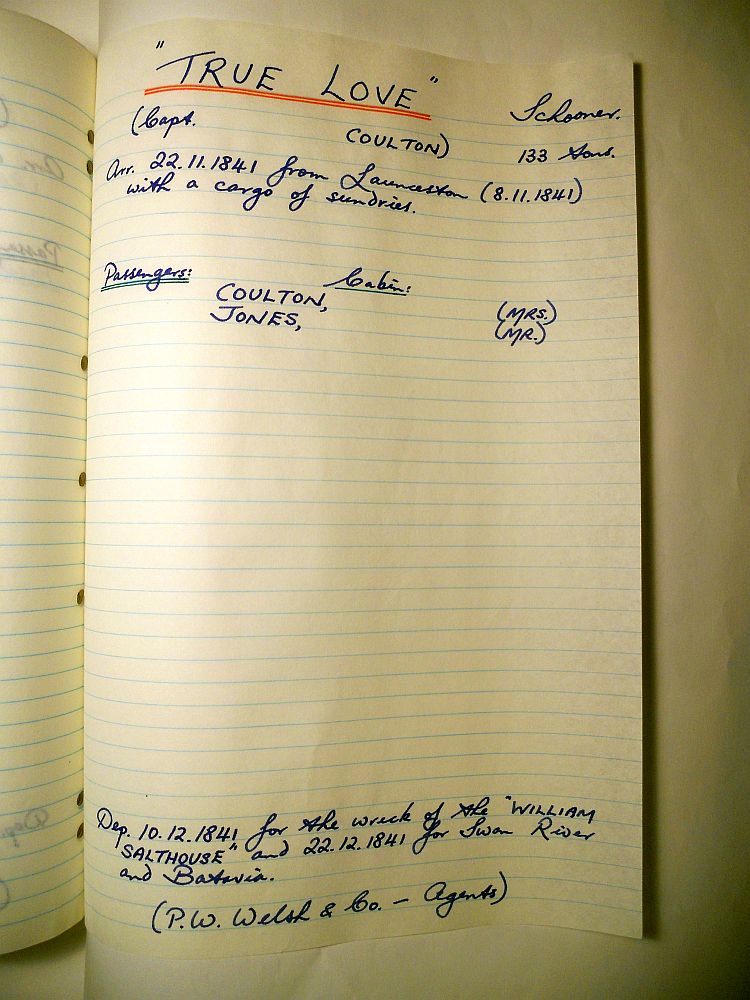 "TRUE LOVE" Schooner.
(Capt. COULTON) 133 tons.
Arr. 22.11.1841 from Launceston (8.11.1841)
with a cargo of sundries.
Passengers: Cabin:
COULTON, (MRS.)
JONES, (MR.)
Dep. 10.12.1841 for the wreck of the "WILLIAM
SALTHOUSE" and 22.12.1841 for Swan River
and Batavia.
(P.W. Welsh & Co. — Agents)